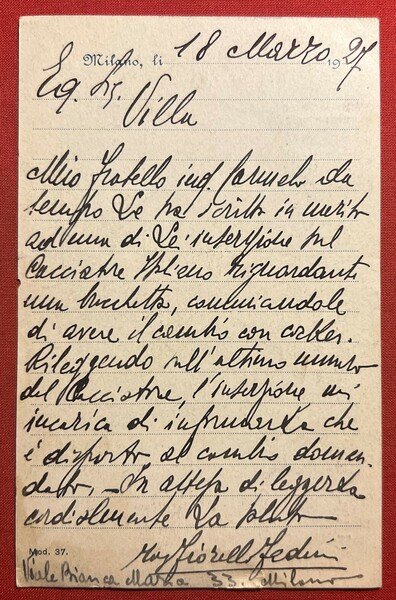 Milano, li 18 Marzo 1927
Eg. Sig.
Villa
Mio fratello ing. Carmelo da
tempo Le ha scritto in merito
ad una di Lei inserzione sul
Cacciatore Italiano riguardante
una bracchetta, comunicandole
di avere il cambio con cocker.
Rileggendo sull'ultimo numero
del Cacciatore, l'inserzione mi
incarica di informarLa che
è disposto al cambio doman-
dato. - In attesa di leggerLa
cordialmente La saluto
Rag. Fiorello Fedini
Mod. 37.
Viale Bianca Maria 33. Milano